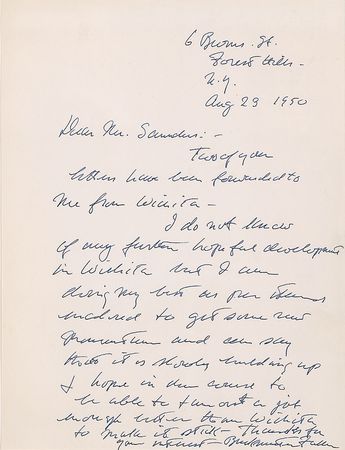 6 Burns. St.
Forest Hills -
N.Y.
Aug 23 1950
Dear Mr. Saunders: -
Two of your
letters have been forwarded to
me from Wichita -
I do not know
of any further hopeful development
in Wichita but I am
doing my best as per
to get some new
momentum and can say
that it is slowly building up
& hope in due course to
be able to turn out a job
enough better than Wichita
to make it stick - Thanks for
your interest - Buckminster Fuller